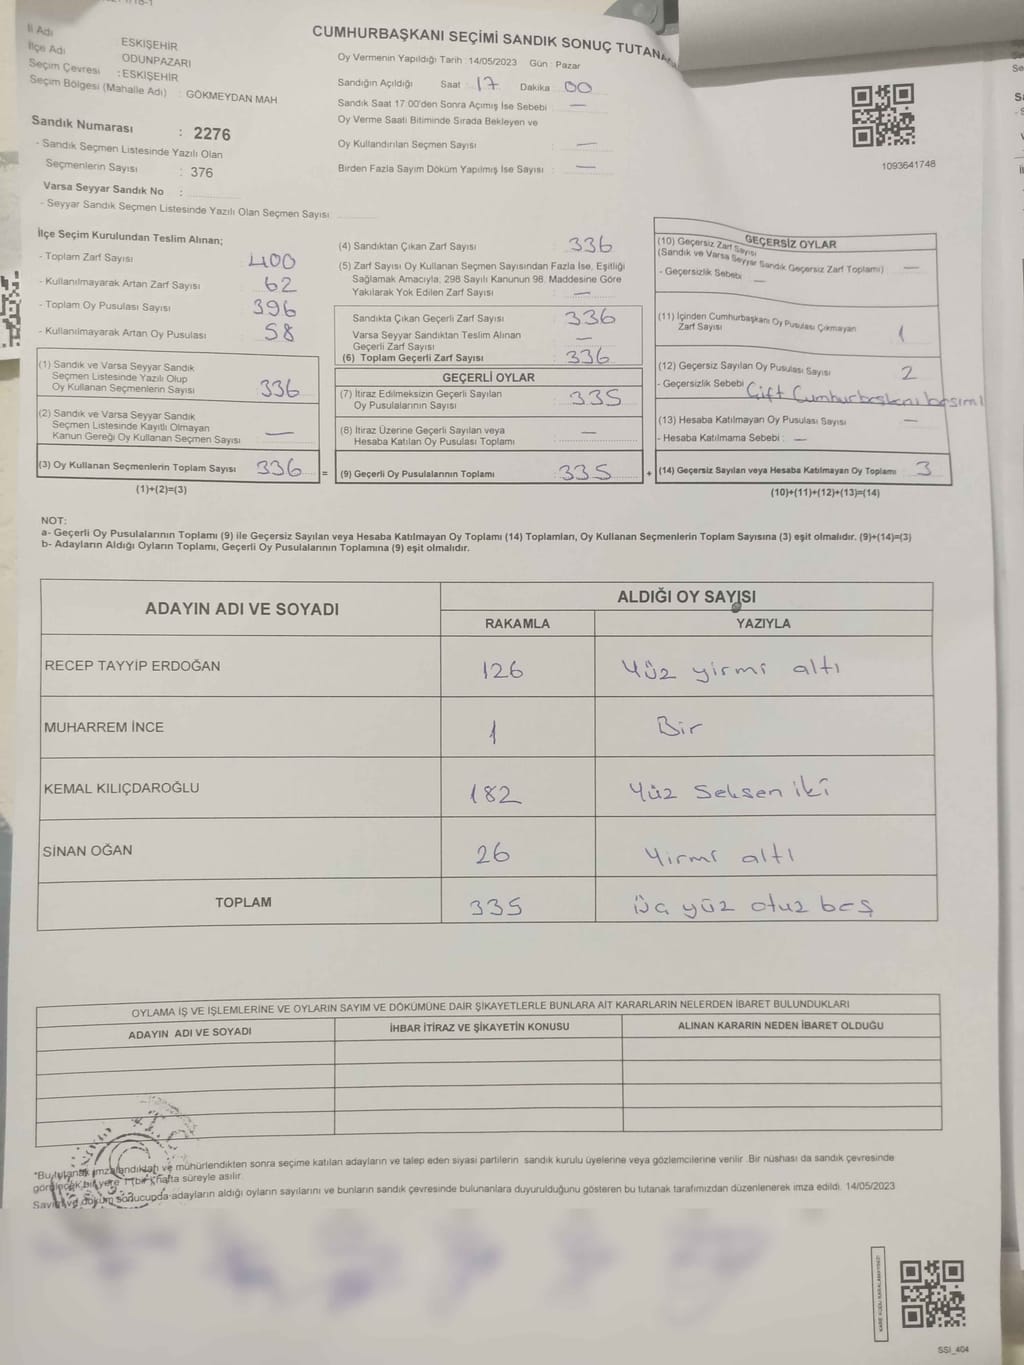 İl Adı : ESKİŞEHİR
İlçe Adı ODUNPAZARI
Seçim Çevresi : ESKİŞEHİR
Seçim Bölgesi (Mahalle Adı) : GÖKMEYDAN MAH
CUMHURBAŞKANI SEÇİMİ SANDIK SONUÇ
Oy Vermenin Yapıldığı Tarih : 14/05/2023 Gün : Pazar
Sandığın Açıldığı Saat : 17 Dakika 00
Sandık Saat 17:00'den Sonra Açımış İse Sebebi : —
Oy Verme Saati Bitiminde Sırada Bekleyen ve
Oy Kullandırılan Seçmen Sayısı : —
Birden Fazla Sayım Döküm Yapılmış İse Sayısı : —
1093641748
Sandık Numarası : 2276
- Sandık Seçmen Listesinde Yazılı Olan
Seçmenlerin Sayısı : 376
Varsa Seyyar Sandık No :
- Seyyar Sandık Seçmen Listesinde Yazılı Olan Seçmen Sayısı
İlçe Seçim Kurulundan Teslim Alınan;
- Toplam Zarf Sayısı 400
- Kullanılmayarak Artan Zarf Sayısı 62
- Toplam Oy Pusulası Sayısı 396
- Kullanılmayarak Artan Oy Pusulası 58
(1) Sandık ve Varsa Seyyar Sandık
Seçmen Listesinde Yazılı Olup
Oy Kullanan Seçmenlerin Sayısı 336
(2) Sandık ve Varsa Seyyar Sandık
Seçmen Listesinde Kayıtlı Olmayan
Kanun Gereği Oy Kullanan Seçmen Sayısı —
(3) Oy Kullanan Seçmenlerin Toplam Sayısı 336 =
(1)+(2)=(3)
(4) Sandıktan Çıkan Zarf Sayısı : 336
(5) Zarf Sayısı Oy Kullanan Seçmen Sayısından Fazla İse, Eşitliği
Sağlamak Amacıyla, 298 Sayılı Kanunun 98. Maddesine Göre
Yakılarak Yok Edilen Zarf Sayısı : —
Sandıkta Çıkan Geçerli Zarf Sayısı : 336
Varsa Seyyar Sandıktan Teslim Alınan
Geçerli Zarf Sayısı : —
(6) Toplam Geçerli Zarf Sayısı : 336
GEÇERLİ OYLAR
(7) İtiraz Edilmeksizin Geçerli Sayılan
Oy Pusulalarının Sayısı : 335
(8) İtiraz Üzerine Geçerli Sayılan veya
Hesaba Katılan Oy Pusulası Toplamı : —
(9) Geçerli Oy Pusulalarının Toplamı : 335 +
GEÇERSİZ OYLAR
(10) Geçersiz Zarf Sayısı
(Sandık ve Varsa Seyyar Sandık Geçersiz Zarf Toplamı) —
- Geçersizlik Sebebi : —
(11) İçinden Cumhurbaşkanı Oy Pusulası Çıkmayan
Zarf Sayısı 1
(12) Geçersiz Sayılan Oy Pusulası Sayısı 2
- Geçersizlik Sebebi : Çift Cumhurbaşkanı basımı
(13) Hesaba Katılmayan Oy Pusulası Sayısı —
- Hesaba Katılmama Sebebi : —
(14) Geçersiz Sayılan veya Hesaba Katılmayan Oy Toplamı 3
(10)+(11)+(12)+(13)=(14)
NOT:
a- Geçerli Oy Pusulalarının Toplamı (9) ile Geçersiz Sayılan veya Hesaba Katılmayan Oy Toplamı (14) Toplamları, Oy Kullanan Seçmenlerin Toplam Sayısına (3) eşit olmalıdır. (9)+(14)=(3)
b- Adayların Aldığı Oyların Toplamı, Geçerli Oy Pusulalarının Toplamına (9) eşit olmalıdır.
ADAYIN ADI VE SOYADI ALDIĞI OY SAYISI
RAKAMLA YAZIYLA
RECEP TAYYİP ERDOĞAN 126 Yüz yirmi altı
MUHARREM İNCE 1 Bir
KEMAL KILIÇDAROĞLU 182 Yüz Seksen iki
SİNAN OĞAN 26 Yirmi altı
TOPLAM 335 Üç yüz otuz beş
OYLAMA İŞ VE İŞLEMLERİNE VE OYLARIN SAYIM VE DÖKÜMÜNE DAİR ŞİKAYETLERLE BUNLARA AİT KARARLARIN NELERDEN İBARET BULUNDUKLARI
ADAYIN ADI VE SOYADI İHBAR İTİRAZ VE ŞİKAYETİN KONUSU ALINAN KARARIN NEDEN İBARET OLDUĞU
*Bu tutanak imzalandıktan ve mühürlendikten sonra seçime katılan adayların ve talep eden siyasi partilerin sandık kurulu üyelerine veya gözlemcilerine verilir. Bir nüshası da sandık çevresinde
görülecek bir yere 1 (bir) hafta süreyle asılır.
Sayım ve döküm sonucunda adayların aldığı oyların sayılarını ve bunların sandık çevresinde bulunanlara duyurulduğunu gösteren bu tutanak tarafımızdan düzenlenerek imza edildi. 14/05/2023
KARE KODU KARALAMAYINIZ!
SSI_404